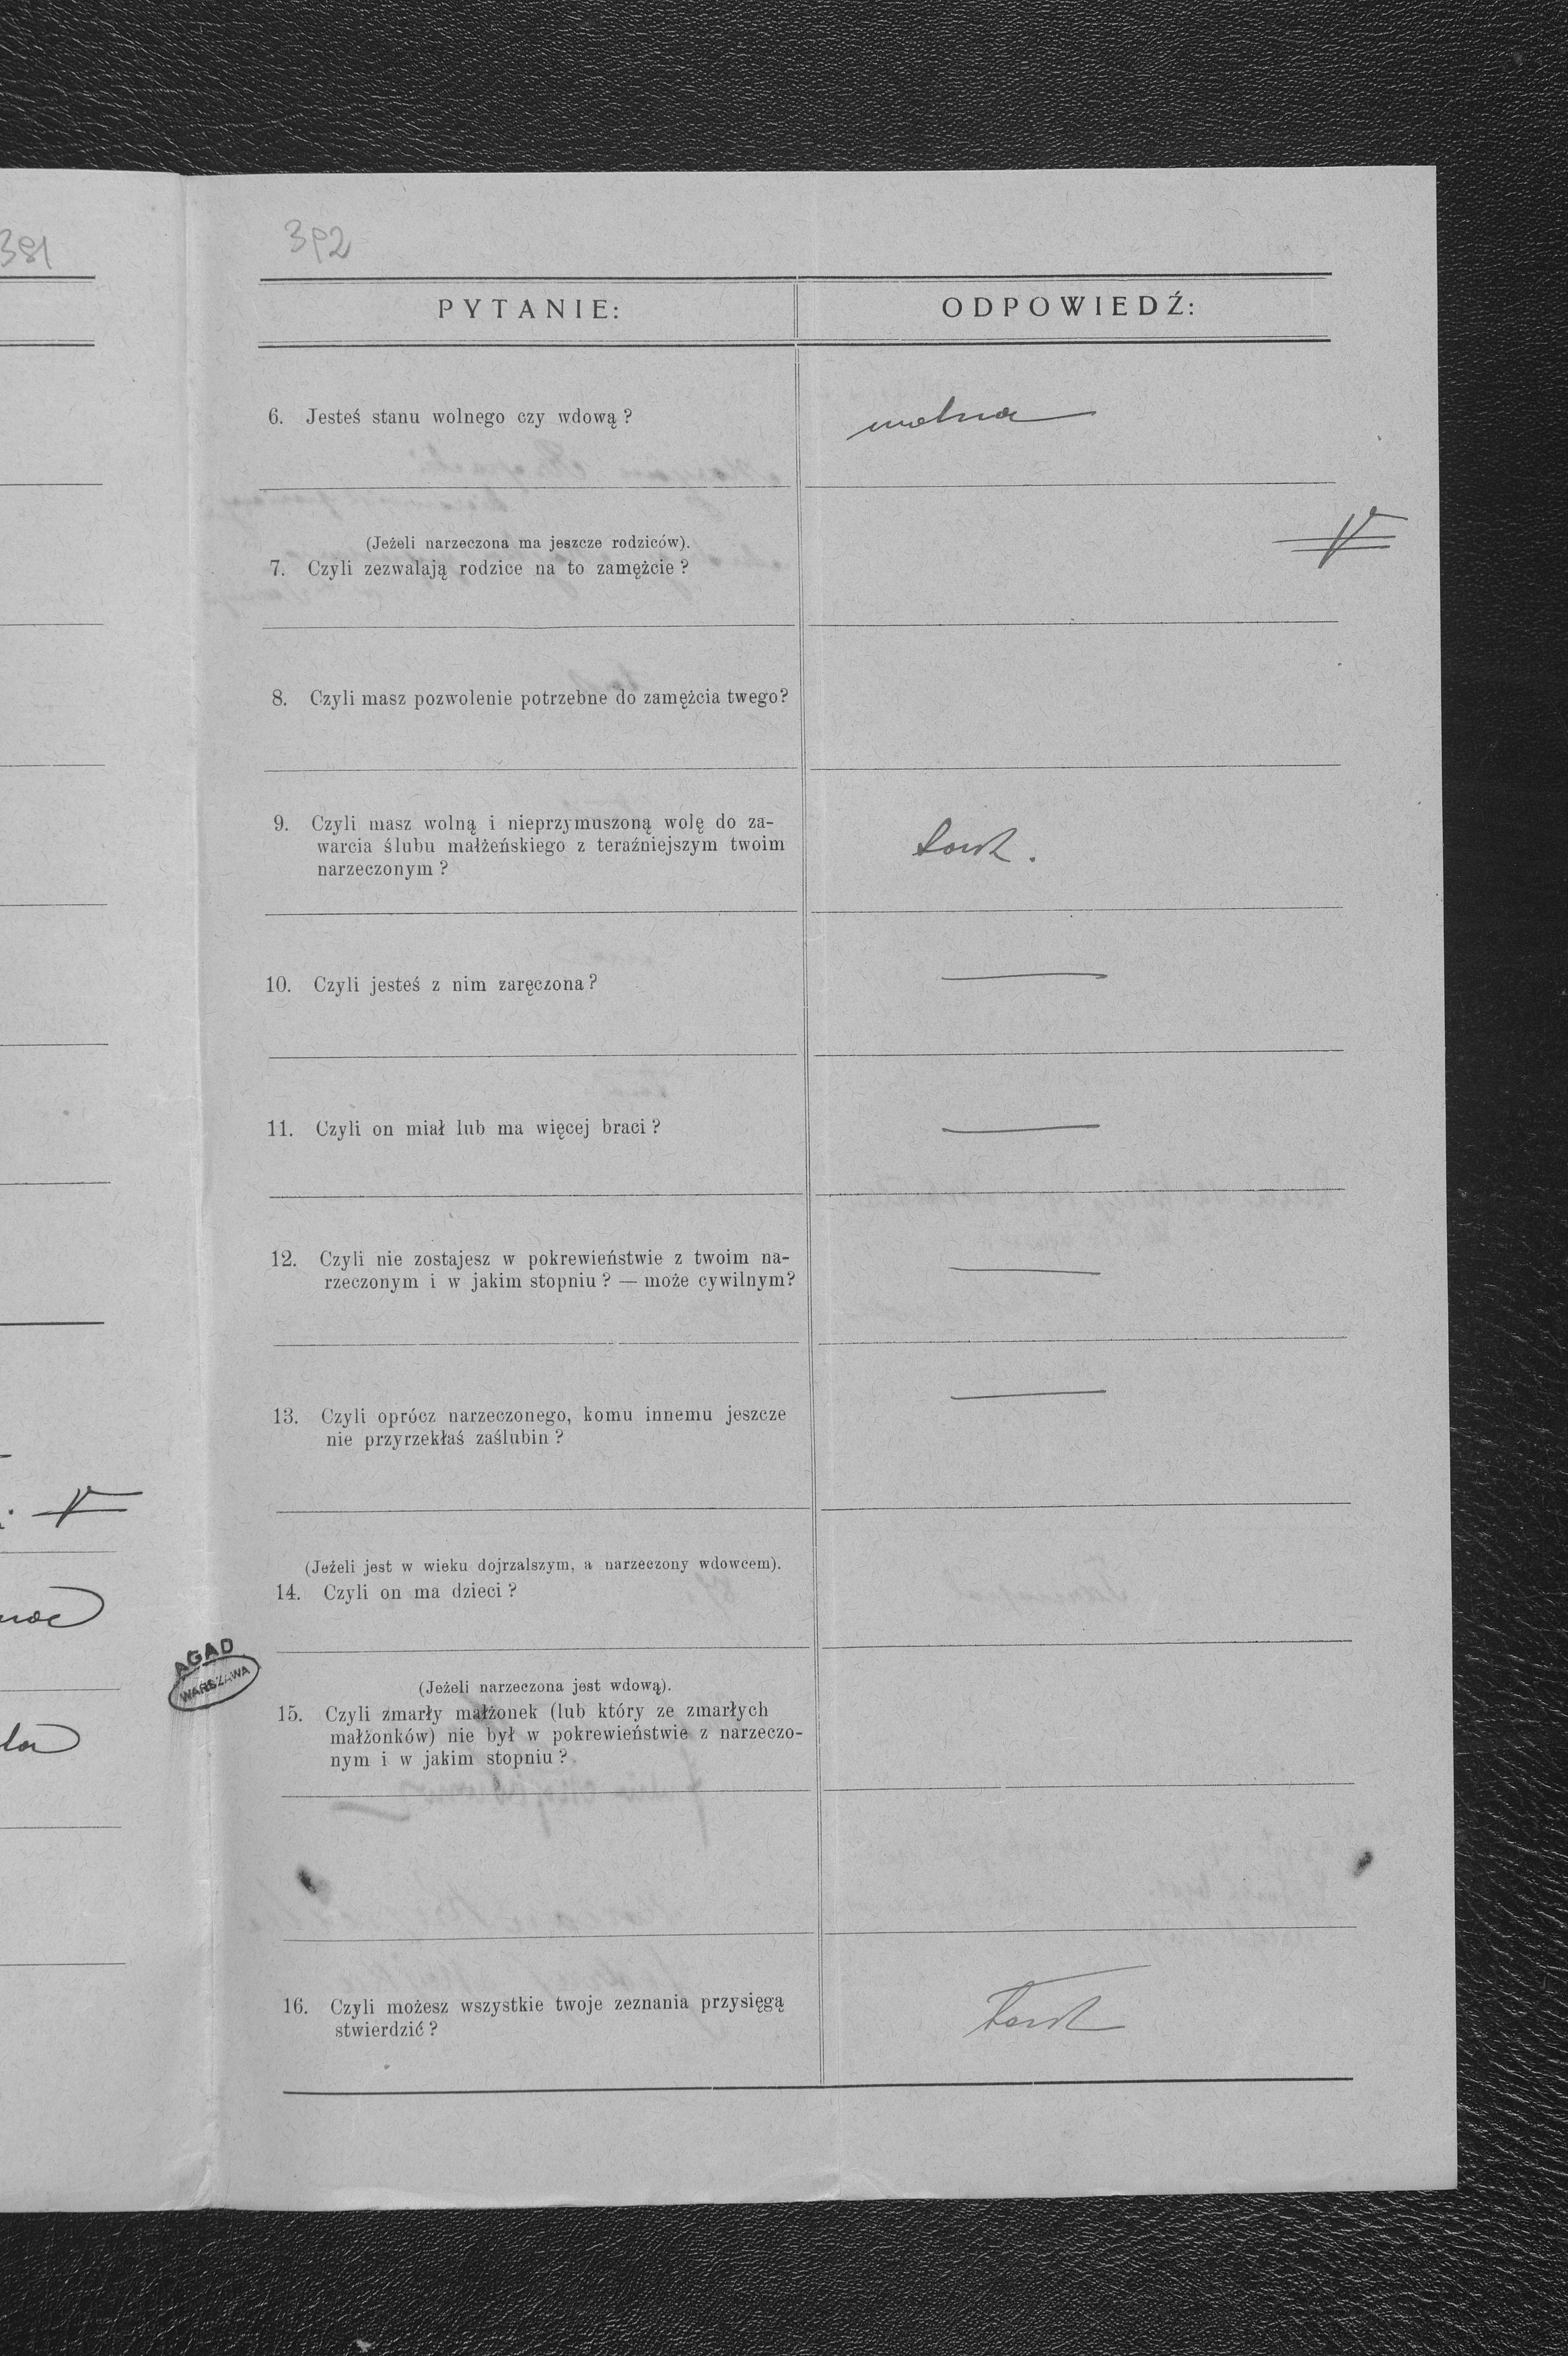 381
392
PYTANIE:
ODPOWIEDŹ:
6. Jesteś stanu wolnego czy wdową?
wolna
(Jeżeli narzeczona ma jeszcze rodziców).
7. Czyli zezwalają rodzice na to zamężcie?
8. Czyli masz pozwolenie potrzebne do zamężcia twego?
9. Czyli masz wolną i nieprzymuszoną wolę do za-
warcia ślubu małżeńskiego z teraźniejszym twoim
narzeczonym?
10. Czyli jesteś z nim zaręczona?
—
11. Czyli on miał lub ma więcej braci?
—
12. Czyli nie zostajesz w pokrewieństwie z twoim na-
rzeczonym i w jakim stopniu? — może cywilnym?
—
13. Czyli oprócz narzeczonego, komu innemu jeszcze
nie przyrzekłaś zaślubin?
—
(Jeżeli jest w wieku dojrzalszym, a narzeczony wdowcem).
14. Czyli on ma dzieci?
AGAD
WARSZAWA
(Jeżeli narzeczona jest wdową).
15. Czyli zmarły małżonek (lub który ze zmarłych
małżonków) nie był w pokrewieństwie z narzeczo-
nym i w jakim stopniu?
16. Czyli możesz wszystkie twoje zeznania przysięgą
stwierdzić?